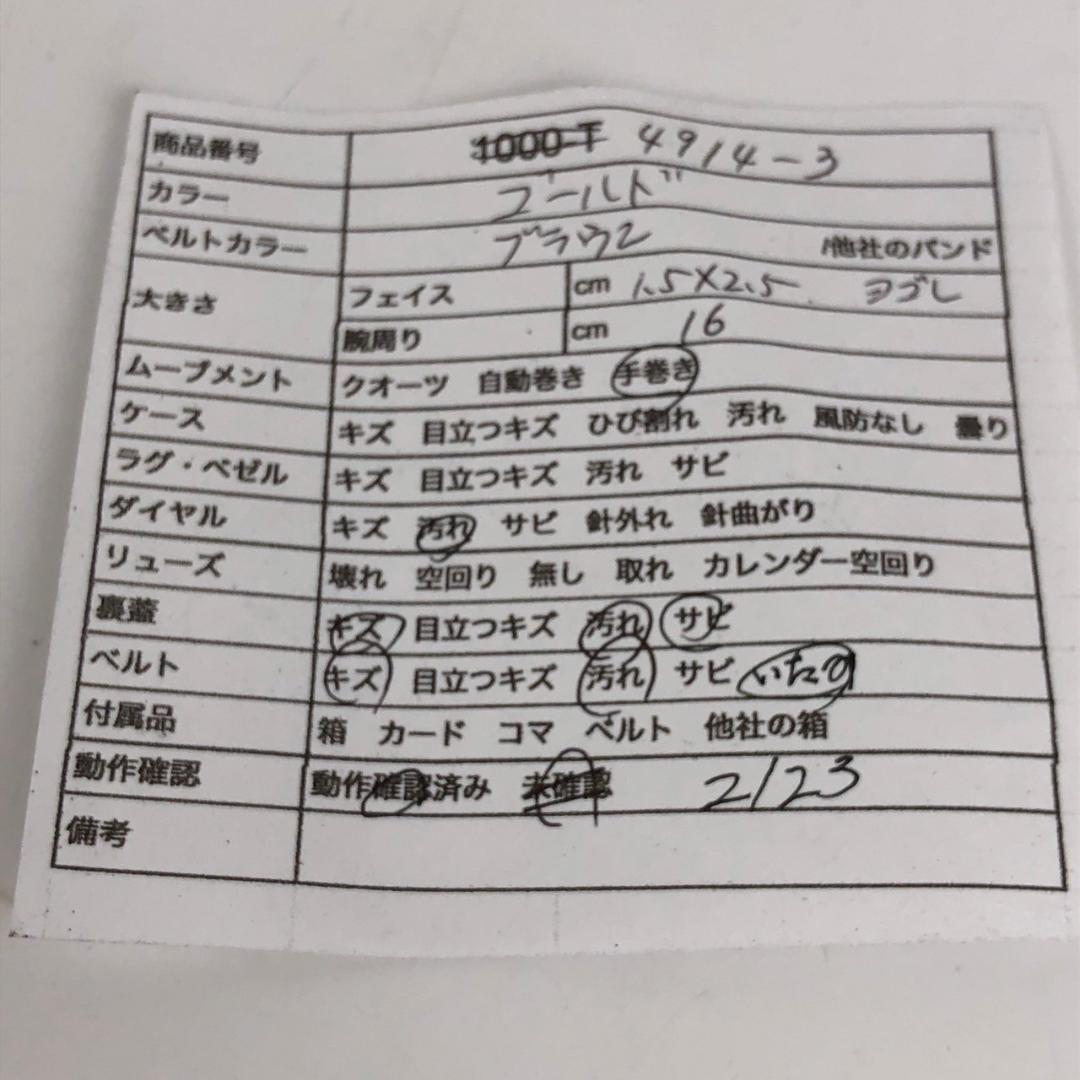 商品番号 1000-T 4914-3
カラー ゴールド
ベルトカラー ブラウン /他社のバンド
大きさ フェイス cm 1.5×2.5 ヨゴレ
腕周り cm 16
ムーブメント クオーツ 自動巻き 手巻き
ケース キズ 目立つキズ ひび割れ 汚れ 風防なし 曇り
ラグ・ベゼル キズ 目立つキズ 汚れ サビ
ダイヤル キズ 汚れ サビ 針外れ 針曲がり
リューズ 壊れ 空回り 無し 取れ カレンダー空回り
裏蓋 キズ 目立つキズ 汚れ サビ
ベルト キズ 目立つキズ 汚れ サビ いたみ
付属品 箱 カード コマ ベルト 他社の箱
動作確認 動作確認済み 未確認 2/23
備考